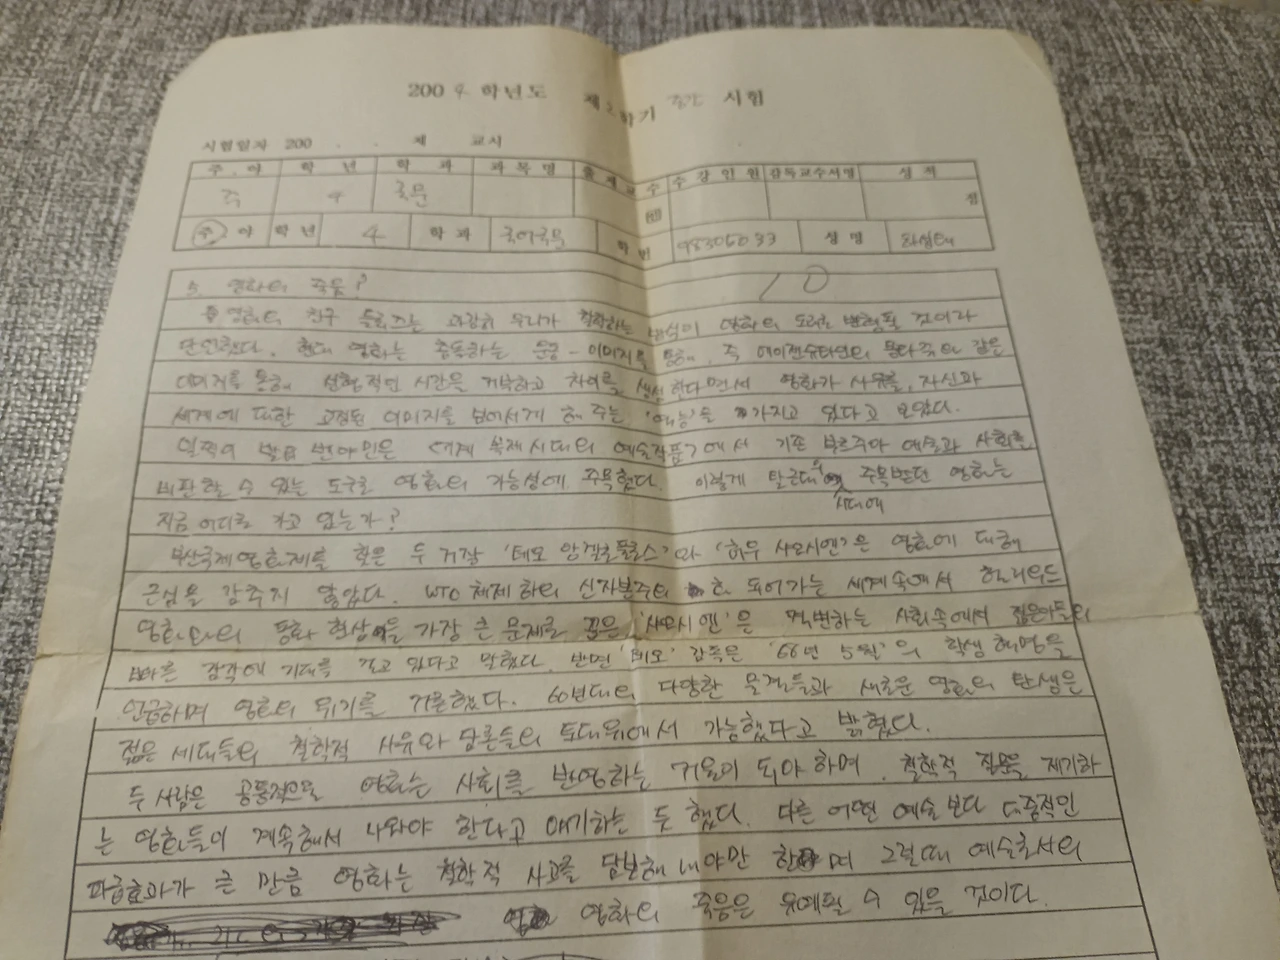 2004 학년도 제2학기 기말 시험
시험일자 200 . . 제 교시
주 . 야 학 년 학 과 과 목 명 출 제 교 수 수 강 인 원 감독교수서명 성 적
주 4 국문 ㊞ 점
주 야 학 년 4 학 과 국어국문 학 번 98306033 성 명
5. 영화의 죽음?
10
영화의 친구 들뢰즈는 과감히 우리가 철학하는 방식이 영화의 도래로 변형될 것이라
단언했다. 현대 영화는 충돌하는 운동-이미지를 통해, 즉 에이젠슈타인의 몽타주와 같은
이미지를 통해 선형적인 시간을 거부하고 차이를 생산한다면서 영화가 사유를, 자신과
세계에 대한 고정된 이미지를 넘어서게 해 주는 '역능'을 가지고 있다고 보았다.
일찍이 발터 벤야민은 <기계 복제시대의 예술작품>에서 기존 부르주아 예술과 사회를
비판할 수 있는 도구로 영화의 가능성에 주목했다. 이렇게 탈근대의 시대에 주목받던 영화는
지금 어디로 가고 있는가?
부산국제영화제를 찾은 두 거장 '테오 앙겔로풀로스'와 '허우 샤오시엔'은 영화에 대해
근심을 감추지 않았다. WTO 체제하의 신자본주의화 되어가는 세계속에서 헐리우드
영화로의 동화 현상을 가장 큰 문제로 꼽은 '샤오시엔'은 격변하는 사회속에서 젊은이들의
빠른 감각에 기대를 걸고 있다고 말했다. 반면 '테오' 감독은 '68년 5월'의 학생 혁명을
언급하며 영화의 위기를 거론했다. 60년대의 다양한 물결들과 새로운 영화의 탄생은
젊은 세대들의 철학적 사유와 담론들의 토대위에서 가능했다고 밝혔다.
두 사람은 공통적으로 영화는 사회를 반영하는 거울이 되야 하며, 철학적 질문을 제기하
는 영화들이 계속해서 나와야 한다고 얘기하는 듯 했다. 다른 어떤 예술보다 대중적인
파급효과가 큰 만큼 영화는 철학적 사고를 담보해 내야만 하며 그럴때 예술로서의
영화의 죽음은 유예될 수 있을 것이다.